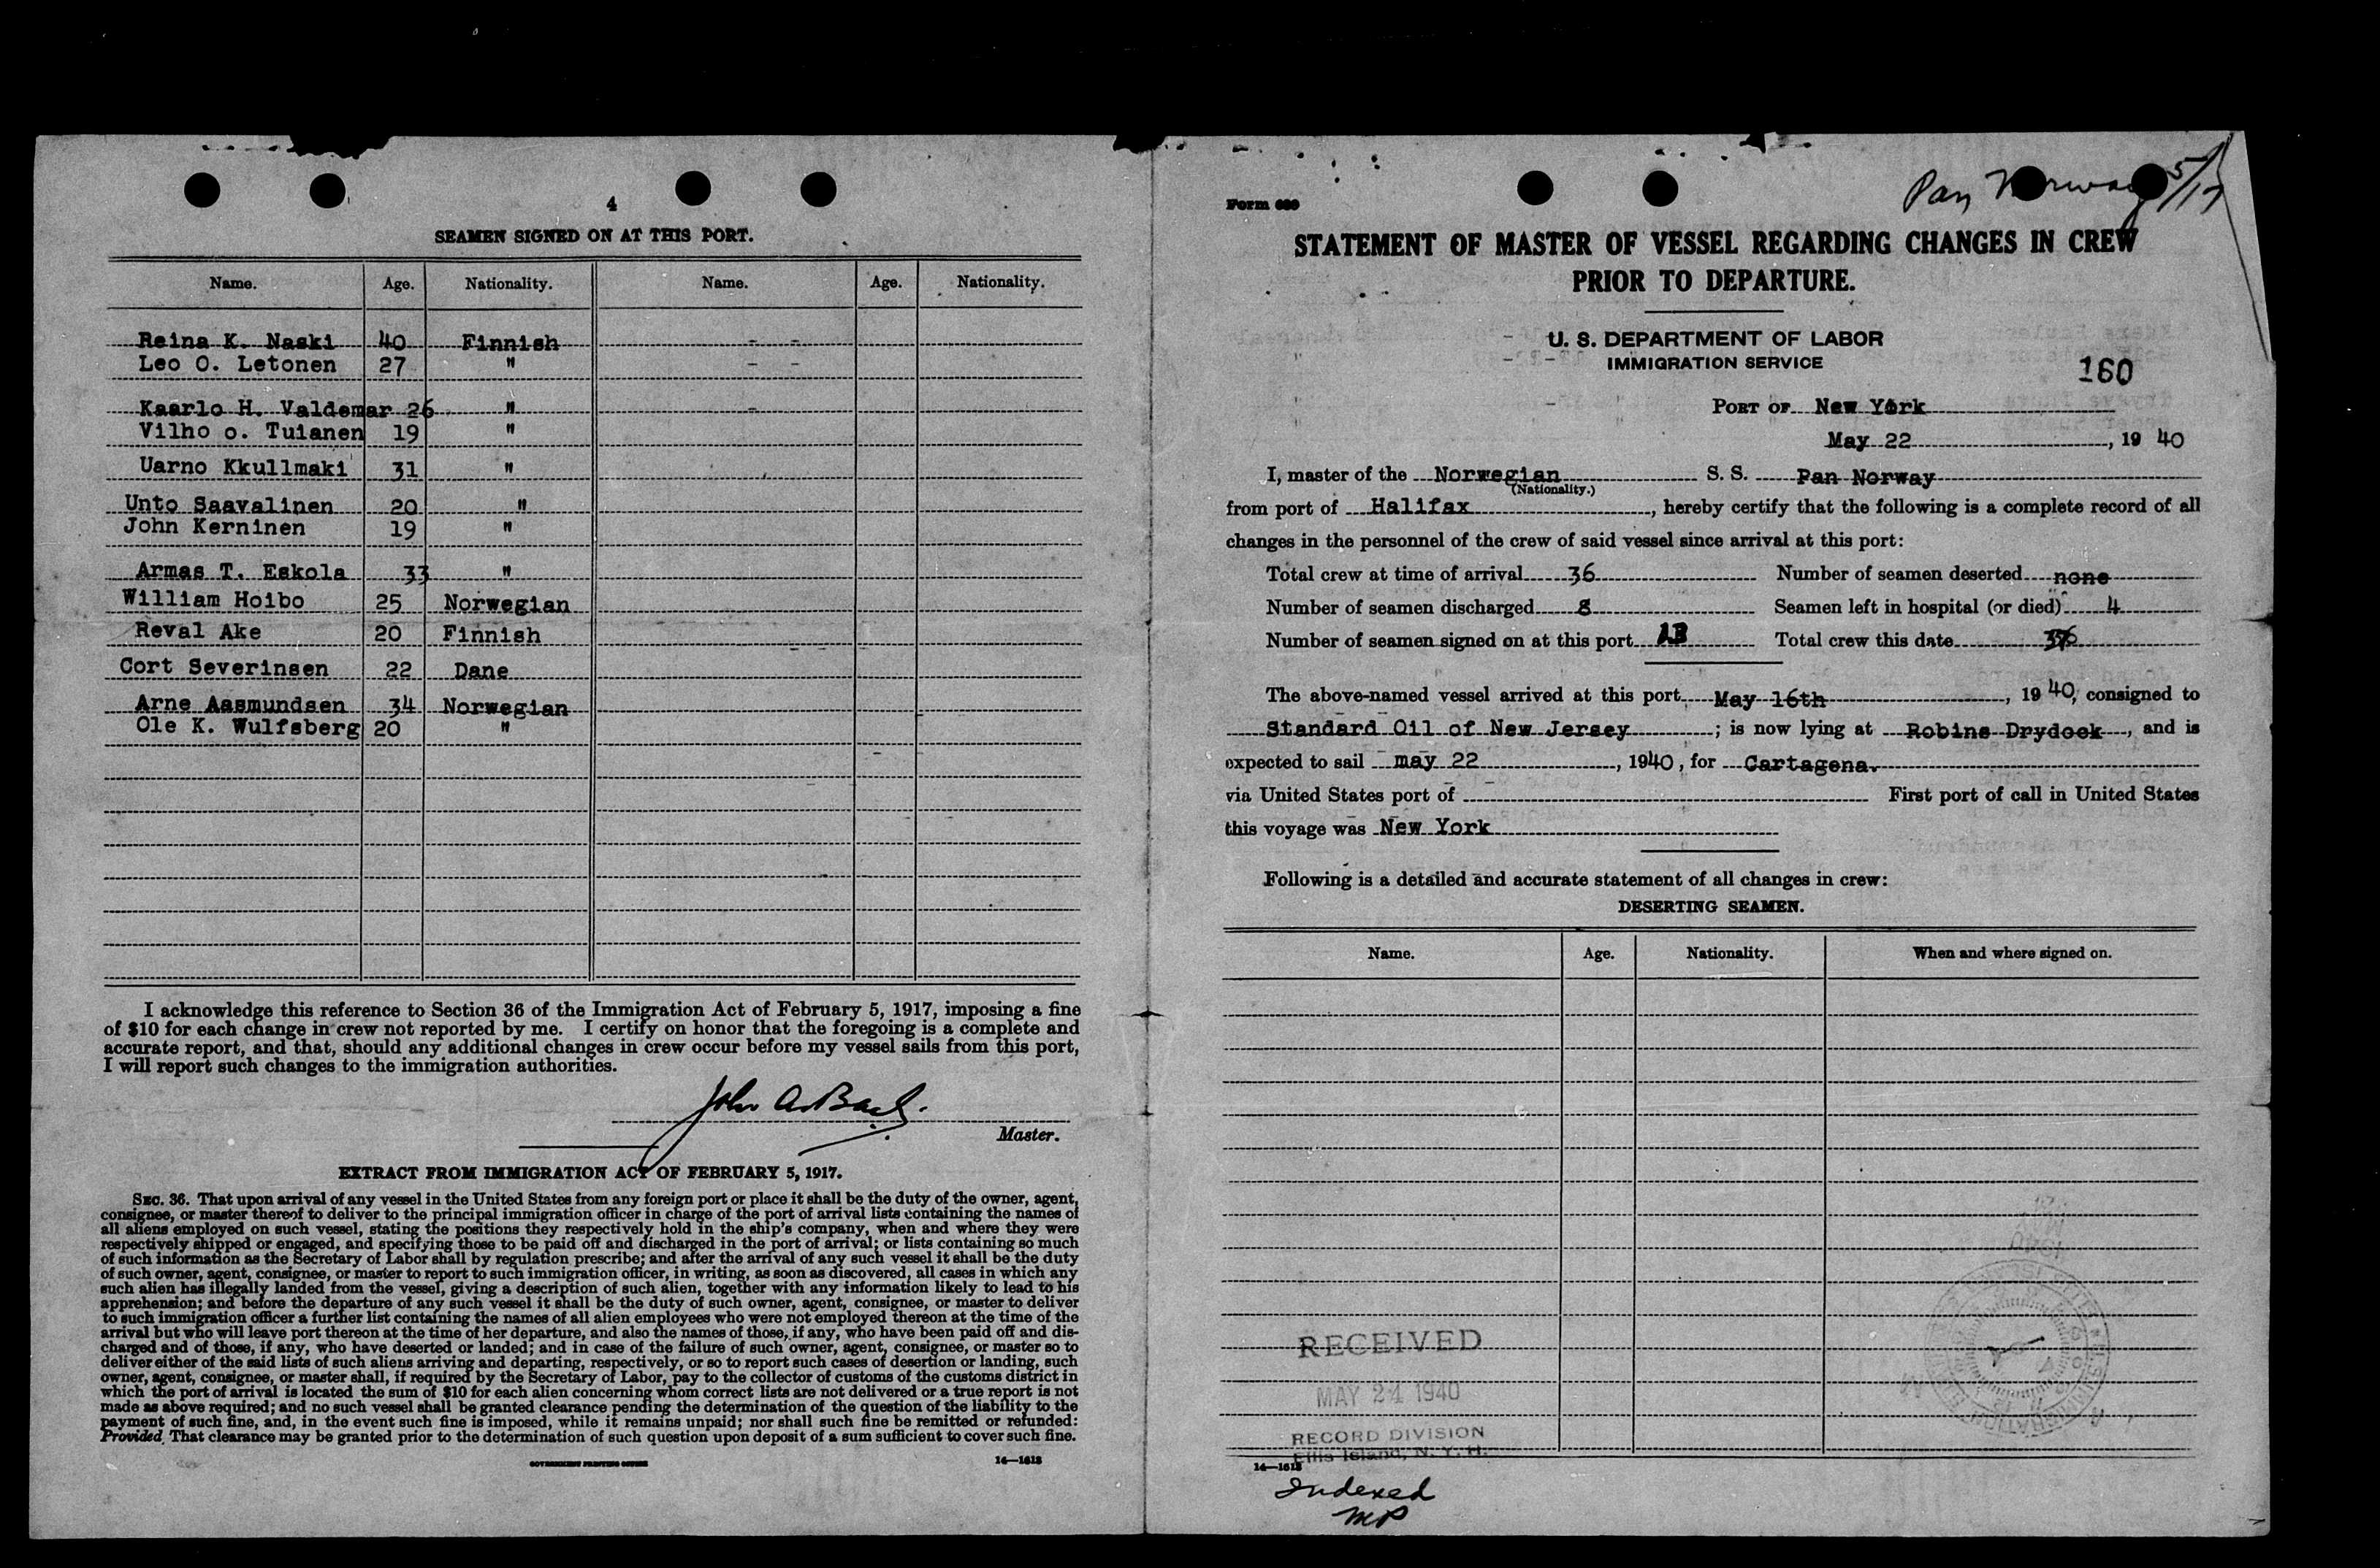 4
SEAMEN SIGNED ON AT THIS PORT.
Name. Age. Nationality. Name. Age. Nationality.
Reina K. Naski 40 Finnish
Leo O. Letonen 27 "
Kaarlo H. Valdemar 26 "
Vilho o. Tuianen 19 "
Uarno Kkullmaki 31 "
Unto Saavalinen 20 "
John Kerninen 19 "
Armas T. Eskola 33 "
William Hoibo 25 Norwegian
Reval Ake 20 Finnish
Cort Severinsen 22 Dane
Arne Aasmundsen 34 Norwegian
Ole K. Wulfsberg 20 "
I acknowledge this reference to Section 36 of the Immigration Act of February 5, 1917, imposing a fine
of $10 for each change in crew not reported by me. I certify on honor that the foregoing is a complete and
accurate report, and that, should any additional changes in crew occur before my vessel sails from this port,
I will report such changes to the immigration authorities.
John A.
Master.
EXTRACT FROM IMMIGRATION ACT OF FEBRUARY 5, 1917.
SEC. 36. That upon arrival of any vessel in the United States from any foreign port or place it shall be the duty of the owner, agent,
consignee, or master thereof to deliver to the principal immigration officer in charge of the port of arrival lists containing the names of
all aliens employed on such vessel, stating the positions they respectively hold in the ship's company, when and where they were
respectively shipped or engaged, and specifying those to be paid off and discharged in the port of arrival; or lists containing so much
of such information as the Secretary of Labor shall by regulation prescribe; and after the arrival of any such vessel it shall be the duty
of such owner, agent, consignee, or master to report to such immigration officer, in writing, as soon as discovered, all cases in which any
such alien has illegally landed from the vessel, giving a description of such alien, together with any information likely to lead to his
apprehension; and before the departure of any such vessel it shall be the duty of such owner, agent, consignee, or master to deliver
to such immigration officer a further list containing the names of all alien employees who were not employed thereon at the time of the
arrival but who will leave port thereon at the time of her departure, and also the names of those, if any, who have been paid off and dis-
charged and of those, if any, who have deserted or landed; and in case of the failure of such owner, agent, consignee, or master so to
deliver either of the said lists of such aliens arriving and departing, respectively, or so to report such cases of desertion or landing, such
owner, agent, consignee, or master shall, if required by the Secretary of Labor, pay to the collector of customs of the customs district in
which the port of arrival is located the sum of $10 for each alien concerning whom correct lists are not delivered or a true report is not
made as above required; and no such vessel shall be granted clearance pending the determination of the question of the liability to the
payment of such fine, and, in the event such fine is imposed, while it remains unpaid; nor shall such fine be remitted or refunded:
Provided, That clearance may be granted prior to the determination of such question upon deposit of a sum sufficient to cover such fine.
GOVERNMENT PRINTING OFFICE 14—1613
Pan Norway 5/17
Form 689
STATEMENT OF MASTER OF VESSEL REGARDING CHANGES IN CREW
PRIOR TO DEPARTURE.
U. S. DEPARTMENT OF LABOR
IMMIGRATION SERVICE
160
PORT OF New York
May 22, 19 40
I, master of the Norwegian S. S. Pan Norway
(Nationality.)
from port of Halifax, hereby certify that the following is a complete record of all
changes in the personnel of the crew of said vessel since arrival at this port:
Total crew at time of arrival 36 Number of seamen deserted none
Number of seamen discharged 8 Seamen left in hospital (or died) 4
Number of seamen signed on at this port 13 Total crew this date
The above-named vessel arrived at this port May 16th, 19 40, consigned to
Standard Oil of New Jersey; is now lying at Robins Drydock, and is
expected to sail may 22, 1940, for Cartagena.
via United States port of First port of call in United States
this voyage was New York
Following is a detailed and accurate statement of all changes in crew:
DESERTING SEAMEN.
Name. Age. Nationality. When and where signed on.
RECEIVED
MAY 24 1940
RECORD DIVISION
Ellis Island, N. Y. H.
14—1613
Indexed
MP